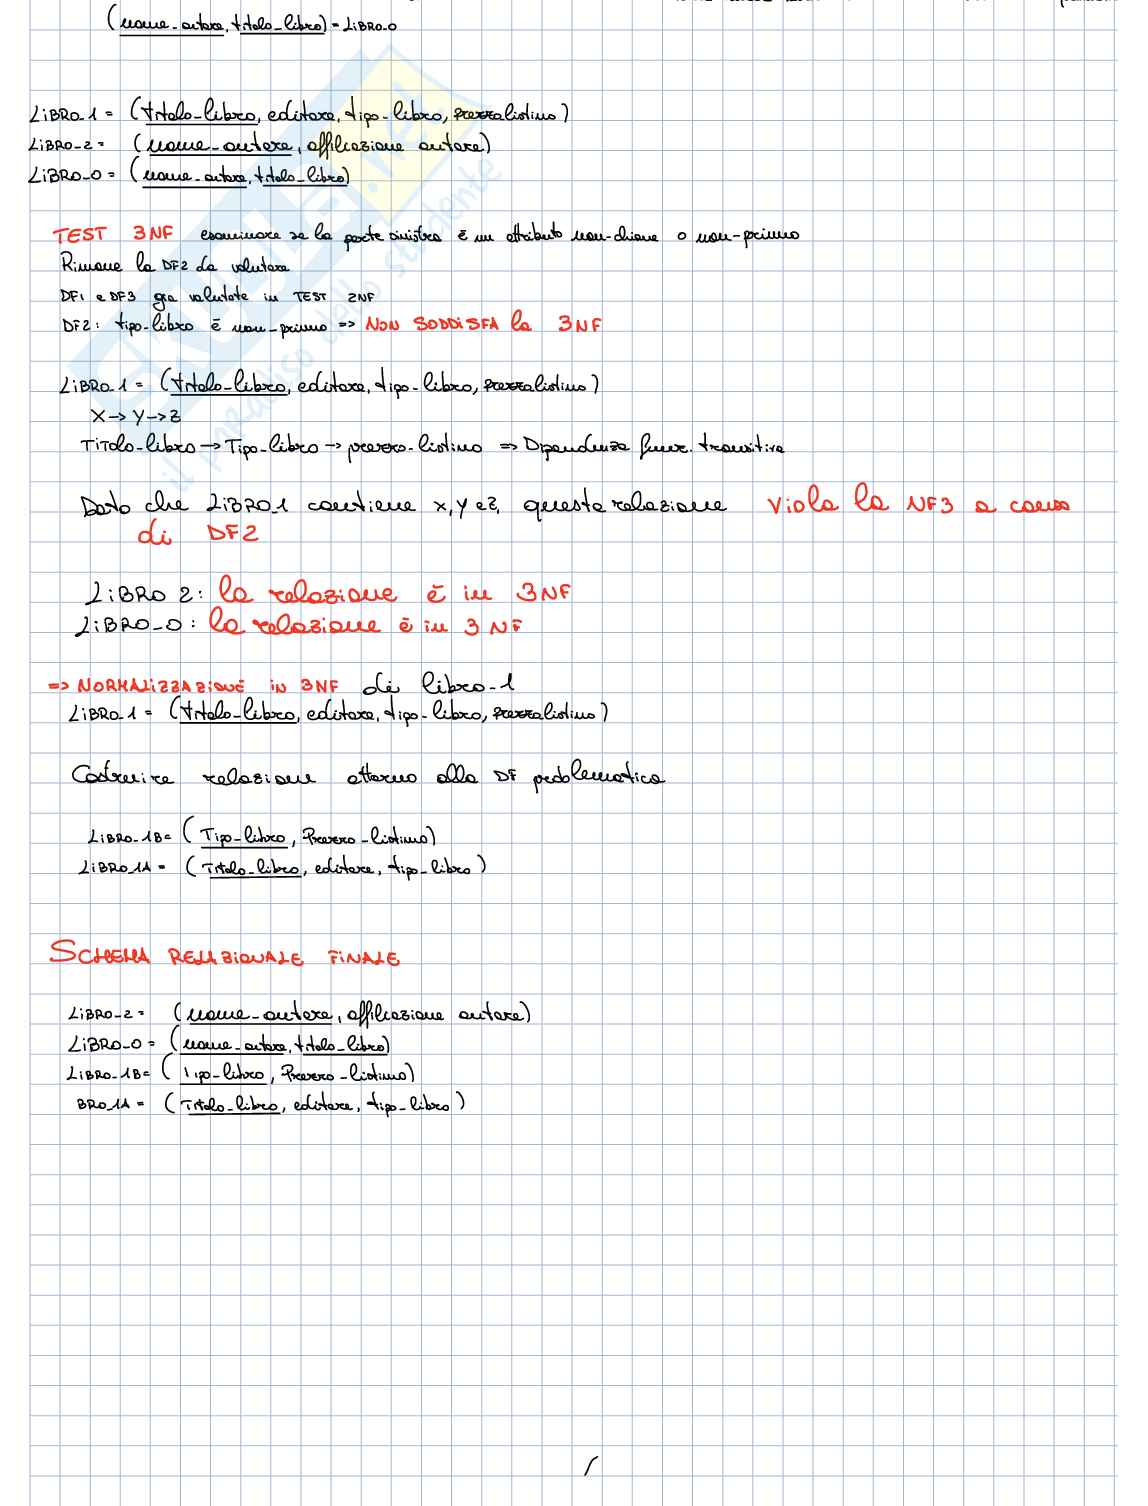 (nome-autore, titolo-libro) = LiBRO-0
LiBRO-1 = (titolo-libro, editore, tipo-libro, prezzolistino)
LiBRO-2 = (nome-autore, affiliazione autore)
LiBRO-0 = (nome-autore, titolo-libro)
TEST 3NF esaminare se la parte sinistra è un attributo non-chiave o non-primo
Rimane la DF2 da valutare
DF1 e DF3 già valutate in TEST 2NF
DF2: tipo-libro è non-primo => NON SODDISFA la 3NF
LiBRO-1 = (titolo-libro, editore, tipo-libro, prezzolistino)
X→Y→Z
TiTolo-libro → Tipo-libro → prezzo-listino => Dipendenza funz. transitiva
Dato che LiBRO-1 contiene x,y e z, questa relazione viola la NF3 a causa
di DF2
LiBRO 2: la relazione è in 3NF
LiBRO-0: la relazione è in 3NF
=> NORMALiZZAZiONE iN 3NF di libro-1
LiBRO-1 = (titolo-libro, editore, tipo-libro, prezzolistino)
Costruire relazione attorno alla DF problematica
LiBRO-1B= (Tipo-libro, Prezzo-listino)
LiBRO-1A = (Titolo-libro, editore, tipo-libro)
SCHEMA RELAZiONALE FiNALE
LiBRO-2 = (nome-autore, affiliazione autore)
LiBRO-0 = (nome-autore, titolo-libro)
LiBRO-1B= (Tipo-libro, Prezzo-listino)
BRO-1A = (Titolo-libro, editore, tipo-libro)
il paradiso dello studente